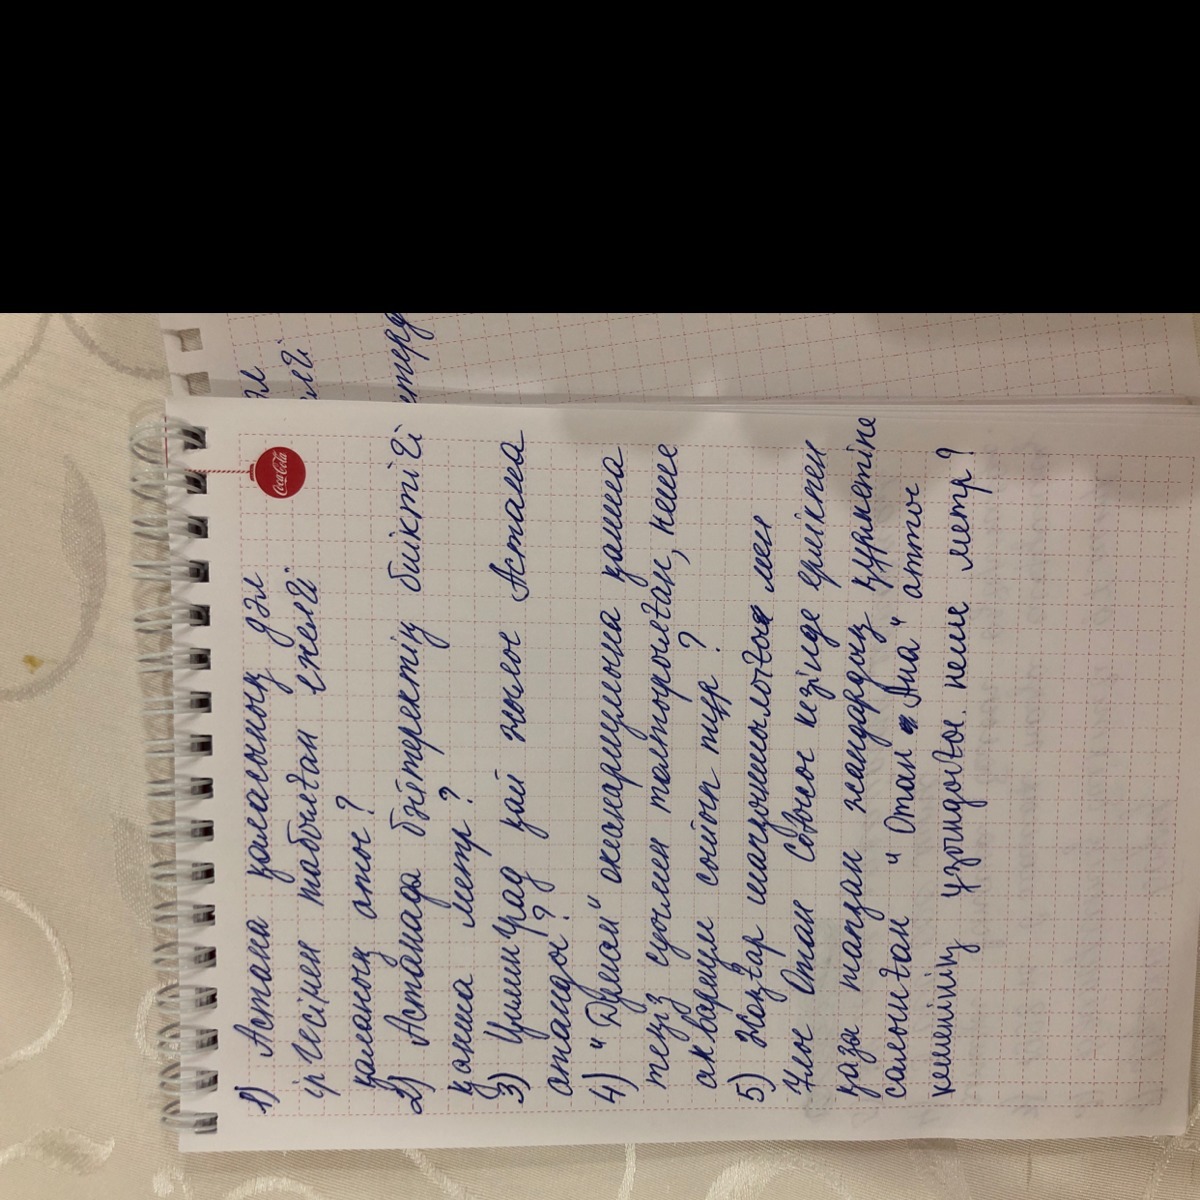 Coca-Cola
1) Астана қаласының дәл
іргесінен табылған ежелгі
қаланың аты?
2) Астанада бәйтеректің биіктігі
қанша метр?
3) Целинград қай жылы Астана
аталды?
4) "Думан" океанариумына қанша
теңіз суымен толтырылған, неше
аквариум сыйып тұр?
5) Жаңғар шапқыншылығы мен
Ұлы Отан Соғысы кезінде ерлікпен
қаза тапқан жандардың құрметіне
салынған "Отан Ана" атты
кешенінің ұзындығы неше метр?